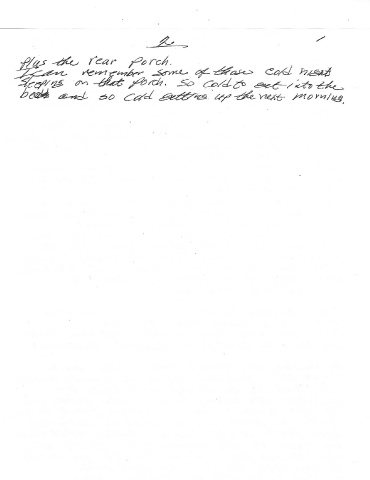 Plus the rear porch.
I can remember some of those cold
sleeping on that porch. So cold to get into the
beds and so cold getting up the next morning.